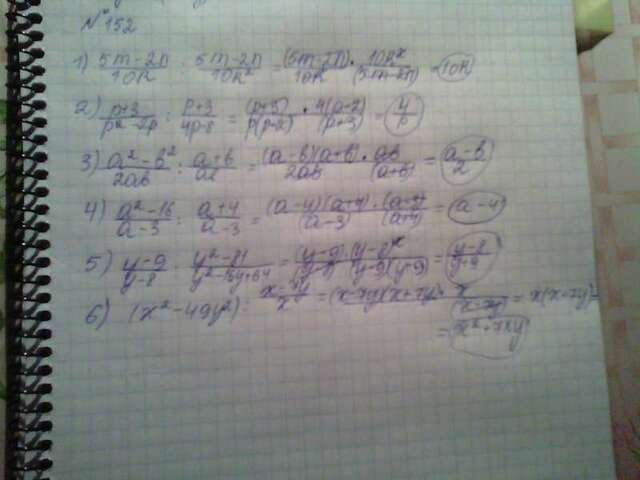 № 152
1) (5m-2n)/(10k) : (5m-2n)/(10k²) = (5m-2n)/(10k) · (10k²)/(5m-2n) = 10k
2) (p+3)/(p²-2p) : (p+3)/(4p-8) = (p+3)/(p(p-2)) · (4(p-2))/(p+3) = 4/p
3) (a²-b²)/(2ab) : (a+b)/(ab) = ((a-b)(a+b))/(2ab) · (ab)/(a+b) = (a-b)/2
4) (a²-16)/(a-3) : (a+4)/(a-3) = ((a-4)(a+4))/(a-3) · (a-3)/(a+4) = a-4
5) (y-9)/(y-8) : (y²-81)/(y²-16y+64) = ((y-9)·(y-8)²)/((y-8)(y-9)(y+9)) = (y-8)/(y+9)
6) (x²-49y²) : (x-7y)/x = (x-7y)(x+7y) · x/(x-7y) = x(x+7y)=
= x²+7xy